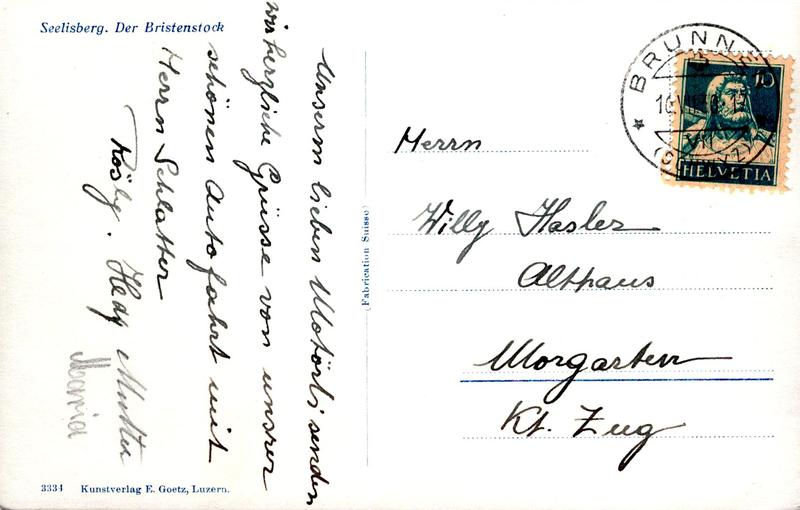 Seelisberg. Der Bristenstock
Unserm lieben Motörli, senden
wir herzliche Grüsse von unsrer
schönen Autofahrt mit
Herrn Schlatter
Rösly. Hedy Mutter
Maria
(Fabrication Suisse)
BRUNNEN
(SCHWYZ)
10
HELVETIA
Herrn
Willy Hasler
Althaus
Morgarten
Kt. Zug
3334 Kunstverlag E. Goetz, Luzern.